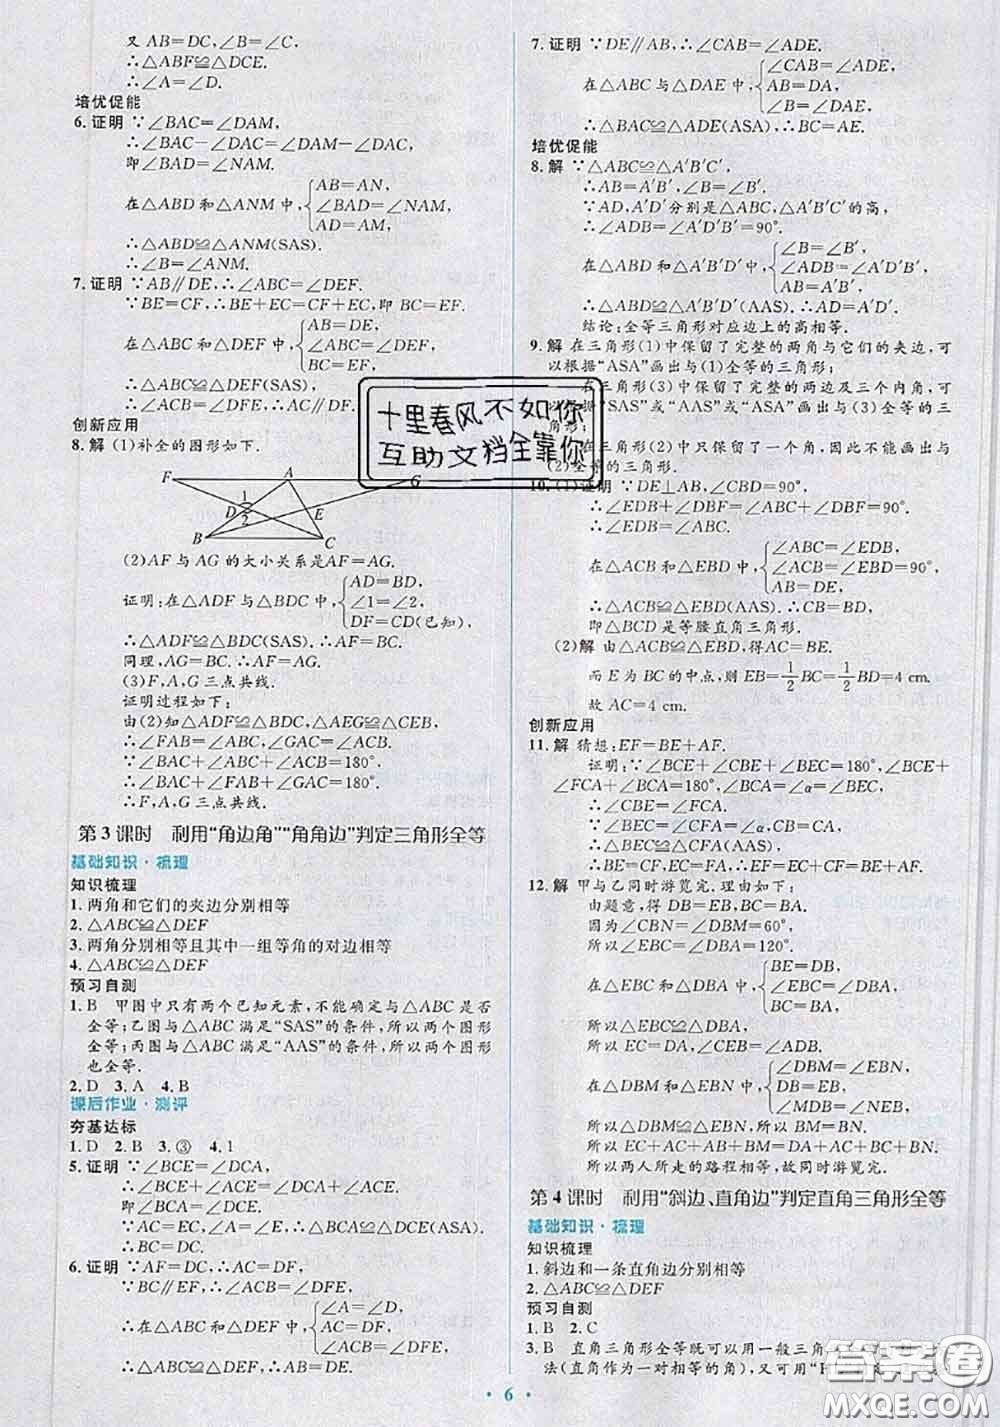 又 AB=DC,∠B=∠C,
∴△ABF≌△DCE.
∴∠A=∠D.
培优促能
6.证明 ∵∠BAC=∠DAM,
∴∠BAC-∠DAC=∠DAM-∠DAC,
即∠BAD=∠NAM.
在△ABD 和△ANM 中,{AB=AN,
∠BAD=∠NAM,
AD=AM,
∴△ABD≌△ANM(SAS).
∴∠B=∠ANM.
7.证明 ∵AB∥DE,∴∠ABC=∠DEF.
∵BE=CF,∴BE+EC=CF+EC,即 BC=EF.
在△ABC 和△DEF 中,{AB=DE,
∠ABC=∠DEF,
BC=EF,
∴△ABC≌△DEF(SAS),
∴∠ACB=∠DFE,∴AC∥DF.
创新应用
8.解 (1)补全的图形如下.
F A G
D 1 2 E
B C
(2)AF 与 AG 的大小关系是AF=AG.
证明:在△ADF 与△BDC 中,{AD=BD,
∠1=∠2,
DF=CD(已知),
∴△ADF≌△BDC(SAS).∴AF=BC.
同理,AG=BC.∴AF=AG.
(3)F,A,G三点共线.
证明过程如下:
由(2)知△ADF≌△BDC,△AEG≌△CEB,
∴∠FAB=∠ABC,∠GAC=∠ACB.
∵∠BAC+∠ABC+∠ACB=180°,
∴∠BAC+∠FAB+∠GAC=180°.
∴F,A,G 三点共线.
第 3 课时 利用“角边角”“角角边”判定三角形全等
基础知识·梳理
知识梳理
1.两角和它们的夹边分别相等
2.△ABC≌△DEF
3.两角分别相等且其中一组等角的对边相等
4.△ABC≌△DEF
预习自测
1.B 甲图中只有两个已知元素,不能确定与△ABC 是否
全等;乙图与△ABC 满足“SAS”的条件,所以两个图形
全等;丙图与△ABC 满足“AAS”的条件,所以两个图形
也全等.
2.D 3.A 4.B
课后作业·测评
夯基达标
1.D 2.B 3.③ 4.1
5.证明 ∵∠BCE=∠DCA,
∴∠BCE+∠ACE=∠DCA+∠ACE,
即∠BCA=∠DCE.
∵AC=EC,∠A=∠E,∴△BCA≌△DCE(ASA).
∴BC=DC.
6.证明 ∵AF=DC,∴AC=DF.
∵BC∥EF,∴∠ACB=∠DFE,
∴在△ABC 和△DEF 中,{∠A=∠D,
AC=DF,
∠ACB=∠DFE,
∴△ABC≌△DEF(ASA),∴AB=DE.
7.证明 ∵DE∥AB,∴∠CAB=∠ADE.
在△ABC 与△DAE 中,{∠CAB=∠ADE,
AB=DA,
∠B=∠DAE,
∴△ABC≌△DAE(ASA),∴BC=AE.
培优促能
8.解 ∵△ABC≌△A'B'C',
∴AB=A'B',∠B=∠B'.
∵AD,A'D'分别是△ABC,△A'B'C'的高,
∴∠ADB=∠A'D'B'=90°.
在△ABD 和△A'B'D'中,{∠B=∠B',
∠ADB=∠A'D'B',
AB=A'B',
∴△ABD≌△A'B'D'(AAS),∴AD=A'D'.
结论:全等三角形对应边上的高相等.
9.解 在三角形(1)中保留了完整的两角与它们的夹边,可
以根据“ASA”画出与(1)全等的三角形;
在三角形(3)中保留了完整的两边及三个内角,可
“SAS”或“AAS”或“ASA”画出与(3)全等的三
角形;
在三角形(2)中只保留了一个角,因此不能画出与
(2)全等的三角形.
10.(1)证明 ∵DE⊥AB,∠CBD=90°.
∴∠EDB+∠DBF=∠ABC+∠DBF=90°.
∴∠EDB=∠ABC.
在△ACB 和△EBD 中,{∠ABC=∠EDB,
∠ACB=∠EBD,
AB=ED,
∴△ACB≌△EBD(AAS).∴BC=DB.
即△BCD 是等腰直角三角形.
(2)解 由△ACB≌△EBD,得AC=BE.
而E为BC的中点,则 EB=1/2 BC=1/2 BD=4 cm.
故 AC=4 cm.
创新应用
11.解 猜想:EF=BE+AF.
证明:∵∠BCE+∠CBE+∠BEC=180°,∠BCE+
∠FCA+∠BCA=180°,∠BCA=∠α=∠BEC,
∴∠CBE=∠FCA.
∵BC=CA,∠BEC=∠CFA,∴△BEC≌△CFA(AAS).
∴BE=FC,EC=FA,∴EF=EC+CF=AF+BE.
12.解 甲与乙同时游览完.理由如下:
由题意,得 DB=EB,CB=AB.
因为∠CBN=∠DBM=60°,
所以∠EBC=∠DBA=120°.
在△EBC 和△DBA 中,{BE=DB,
∠EBC=∠DBA,
BC=BA,
所以△EBC≌△DBA,
所以 EC=DA,∠CEB=∠ADB.
在△DBM 和△EBN 中,{∠DBM=∠EBN,
DB=BE,
∠MDB=∠NEB,
所以△DBM≌△EBN,所以 BM=BN.
所以 EC+AC+AB+BM=DA+AC+CB+BN.
所以两人所走的路程相等,故同时游览完.
第 4 课时 利用“斜边、直角边”判定直角三角形全等
基础知识·梳理
知识梳理
1.斜边和一条直角边分别相等
2.△ABC≌△DEF
预习自测
1.B 2.C
3.B 直角三角形全等既可以用一般三角
法(直角作为一对相等的角),又可用
· 6 ·
十里春风不如你
互助文档全靠你
答案圈
MXQE.COM